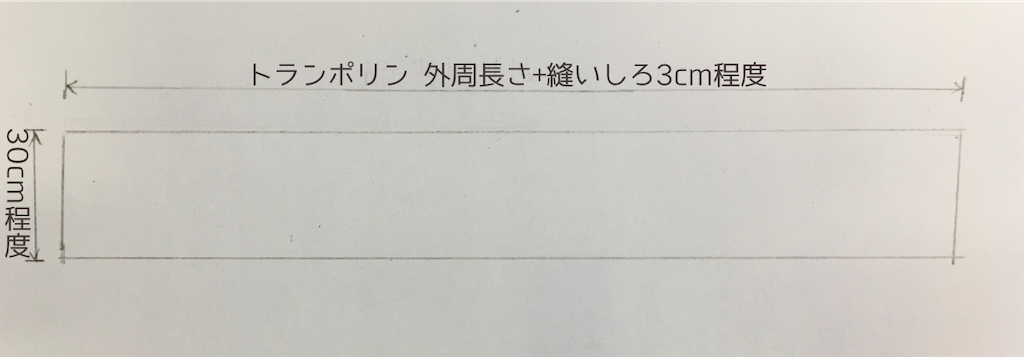 トランポリン 外周長さ+縫いしろ3cm程度
30cm程度